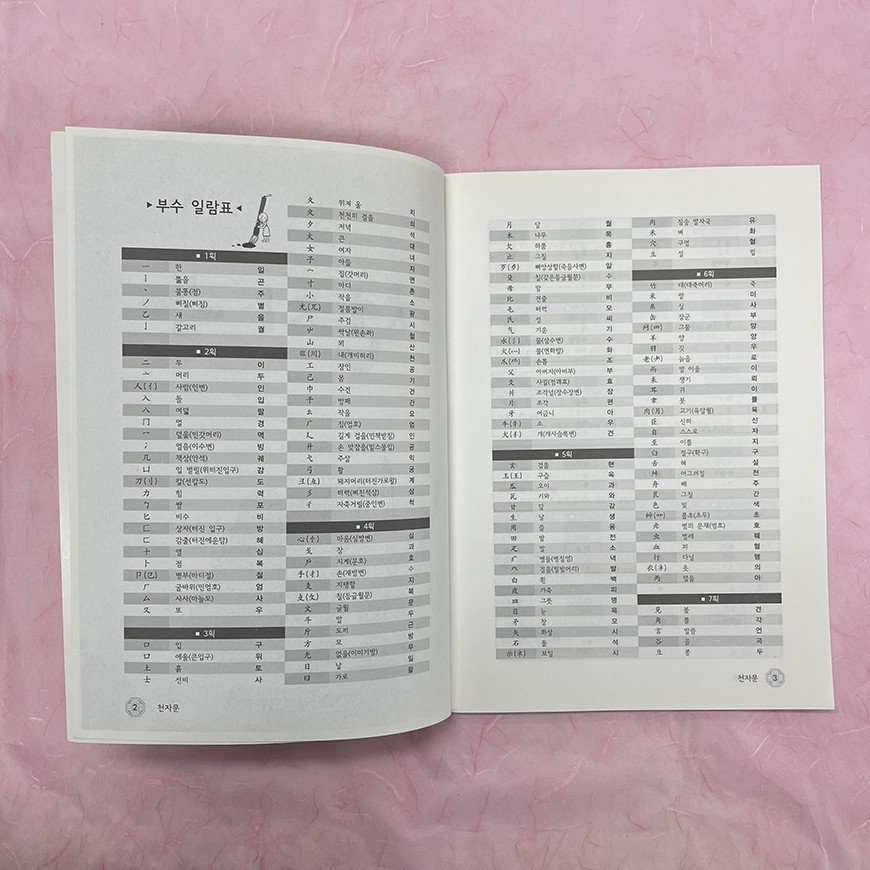 ▶부수 일람표◀
■ 1획
一 한 일
丨 뚫을 곤
丶 불똥(점) 주
丿 삐침(삐침) 별
乙 새 을
亅 갈고리 궐
■ 2획
二 두 이
亠 머리 두
人(亻) 사람(인변) 인
入 들 입
八 여덟 팔
冂 멀 경
冖 덮을(민갓머리) 멱
冫 얼음(이수변) 빙
几 책상(안석) 궤
凵 입 벌릴(위터진입구) 감
刀(刂) 칼(선칼도) 도
力 힘 력
勹 쌀 포
匕 비수 비
匚 상자(터진 입구) 방
匸 감출(터진에운담) 혜
十 열 십
卜 점 복
卩(㔾) 병부(마디절) 절
厂 굴바위(민엄호) 엄
厶 사사(마늘모) 사
又 또 우
■ 3획
口 입 구
囗 에울(큰입구) 위
土 흙 토
士 선비 사
夂 뒤져 올 치
夊 천천히 걸을
夕 저녁 석
大 큰 대
女 여자 녀
子 아들 자
宀 집(갓머리) 면
寸 마디 촌
小 작을 소
尢(兀) 절름발이 왕
尸 주검 시
屮 싹날(왼손좌) 철
山 뫼 산
巛(川) 내(개미허리) 천
工 장인 공
己 몸 기
巾 수건 건
干 방패 간
幺 작을 요
广 집(엄호) 엄
廴 길게 걸을(민책받침) 인
廾 손 맞잡을(밑스물입) 공
弋 주살 익
弓 활 궁
彐(彑) 돼지머리(터진가로왈) 계
彡 터럭(삐친석삼) 삼
彳 자축거릴(중인변) 척
■ 4획
心(忄) 마음(심방변) 심
戈 창 과
戶 지게(문호) 호
手(扌) 손(재방변) 수
支 지탱할 지
攴(攵) 칠(등글월문) 복
文 글월 문
斗 말 두
斤 도끼 근
方 모 방
无 없을(이미기방) 무
日 날 일
曰 가로 왈
2 천자문
月 달 월
木 나무 목
欠 하품 흠
止 그칠 지
歹(歺) 뼈앙상할(죽을사변) 알
殳 칠(갖은등글월문) 수
毋 말 무
比 견줄 비
毛 터럭 모
氏 성 씨
气 기운 기
水(氵) 물(삼수변) 수
火(灬) 불(연화발) 화
爪(爫) 손톱 조
父 아버지(아비부) 부
爻 사귈(점괘효) 효
爿 조각널(장수장변) 장
片 조각 편
牙 어금니 아
牛(牜) 소 우
犬(犭) 개(개사슴록변) 견
■ 5획
玄 검을 현
玉(王) 구슬 옥
瓜 오이 과
瓦 기와 와
甘 달 감
生 날 생
用 쓸 용
田 밭 전
疋 발 소
疒 병들(병질엄) 녁
癶 걸을(필발머리) 발
白 흰 백
皮 가죽 피
皿 그릇 명
目 눈 목
矛 창 모
矢 화살 시
石 돌 석
示(礻) 보일 시
禸 짐승 발자국 유
禾 벼 화
穴 구멍 혈
立 설 립
■ 6획
竹 대(대죽머리) 죽
米 쌀 미
糸 실 사
缶 장군 부
网(罒) 그물 망
羊 양 양
羽 깃 우
老(耂) 늙을 로
而 말 이을 이
耒 쟁기 뢰
耳 귀 이
聿 붓 률
肉(月) 고기(육달월) 육
臣 신하 신
自 스스로 자
至 이를 지
臼 절구(확구) 구
舌 혀 설
舛 어그러질 천
舟 배 주
艮 그칠 간
色 빛 색
艸(艹) 풀초(초두) 초
虍 범의 문채(범호) 호
虫 벌레 훼
血 피 혈
行 다닐 행
衣(衤) 옷 의
襾 덮을 아
■ 7획
見 볼 견
角 뿔 각
言 말씀 언
谷 골 곡
豆 콩 두
천자문 3